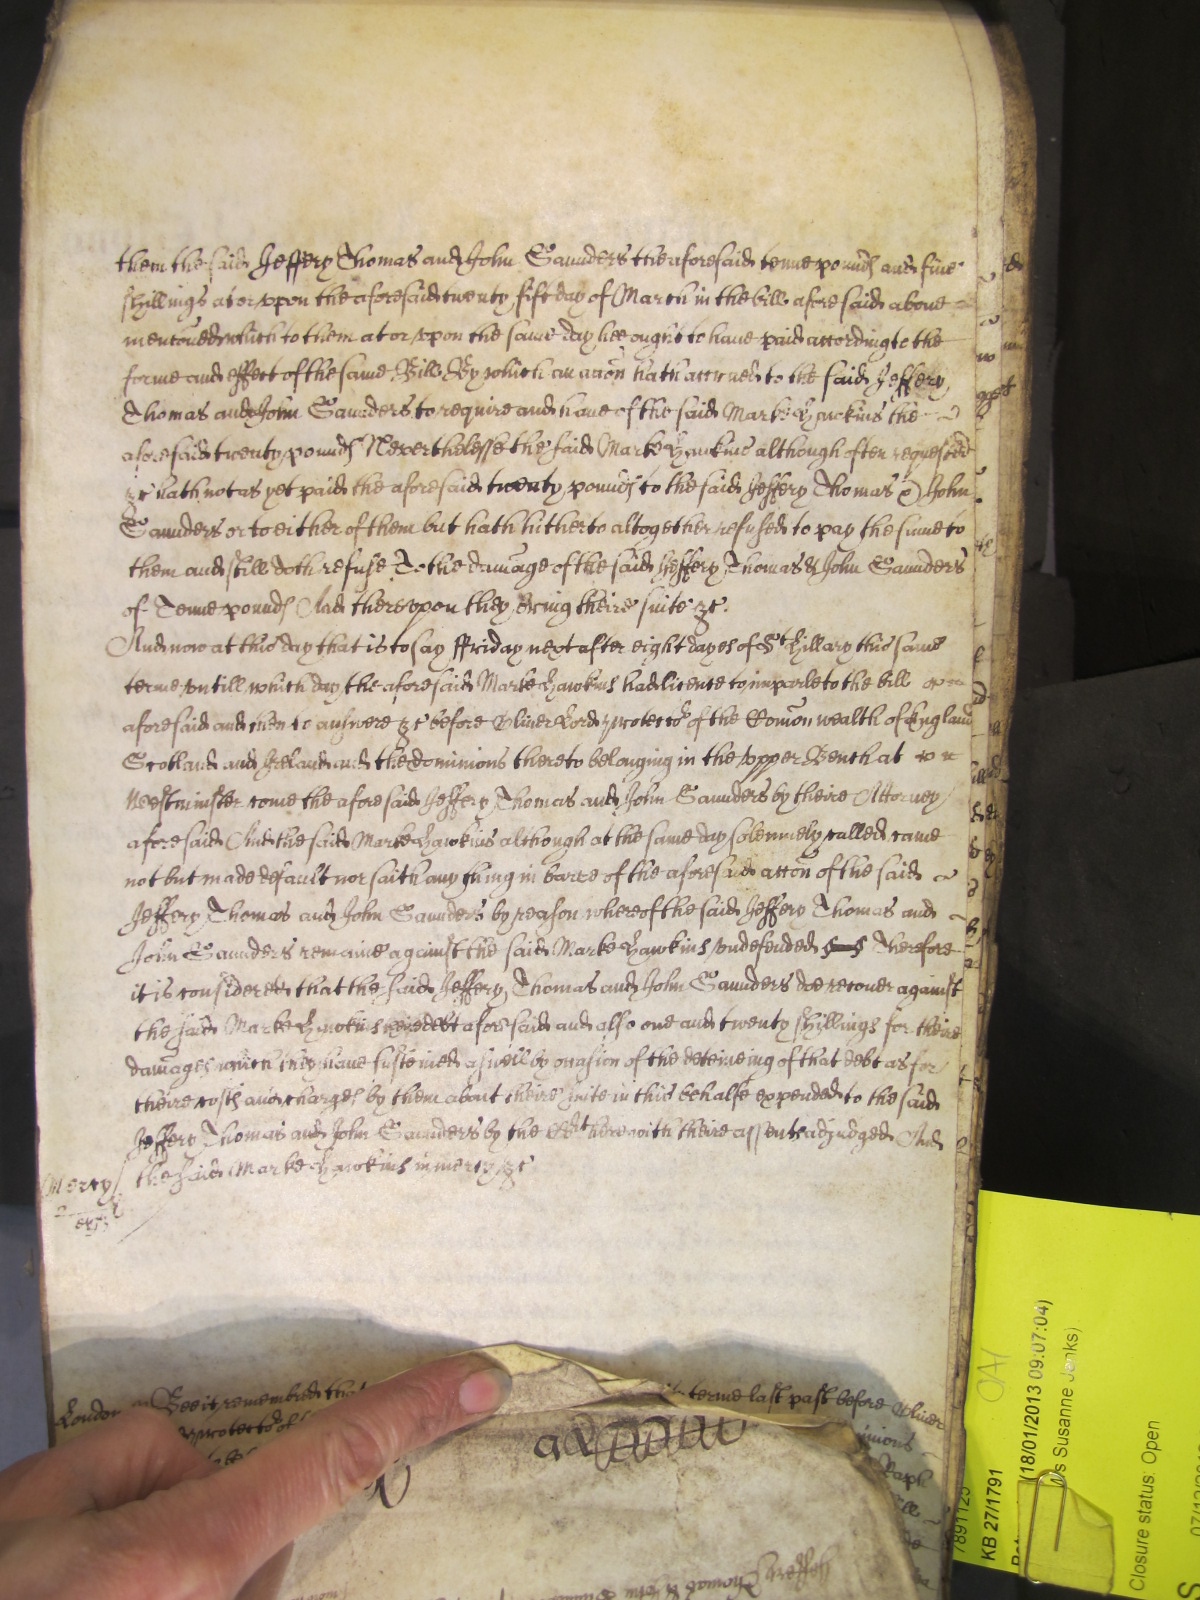 them the said Jeffery Thomas and John Saunders the aforesaid tenne pounds and five
shillings at or vpon the aforesaid twenty fift day of March in the bill aforesaid above
menconed which to them at or vpon the same day hee ought to have paid according to the
forme and effect of the same Bill By which an accon hath accrued to the said Jeffery
Thomas and John Saunders to require and have of the said Marke Hawkins the
aforesaid twenty pounds Neverthelesse the said Marke Hawkins although often requested
&c hath not as yet paid the aforesaid twenty pounds to the said Jeffery Thomas & John
Saunders or to either of them but hath hitherto altogether refused to pay the same to
them and still doth refuse To the damage of the said Jeffery Thomas & John Saunders
of Tenne pounds And therevpon they bring theire suite &c.
And now at this day that is to say ffriday next after eight dayes of St Hillary this same
terme vntill which day the aforesaid Marke Hawkins had licence to imparle to the bill
aforesaid and then to answere &c before Oliver Lord protector of the Comon wealth of England
Scotland and Ireland and the dominions thereto belonging in the vpper Bench at
Westminster come the aforesaid Jeffery Thomas and John Saunders by theire Attorney
aforesaid And the said Marke Hawkins although at the same day solemnely called came
not but made default nor saith any thing in barre of the aforesaid accon of the said
Jeffery Thomas and John Saunders by reason whereof the said Jeffery Thomas and
John Saunders remaine against the said Marke Hawkins vndefended Therefore
it is considered that the said Jeffery Thomas and John Saunders doe recover against
the said Marke Hawkins debt aforesaid and also one and twenty shillings for theire
damages which they have susteined aswell by occasion of the deteineing of that debt as for
theire costs and charges by them about theire suite in this behalfe expended to the said
Jeffery Thomas and John Saunders by the Court here with theire assents adjudged And
the said Marke Hawkins in mercy &c
Mercy
London Bee it remembred that terme last past before Oliver
protector of
KB 27/1791
(18/01/2013 09:07:04)
Susanne Jenks)
Closure status: Open